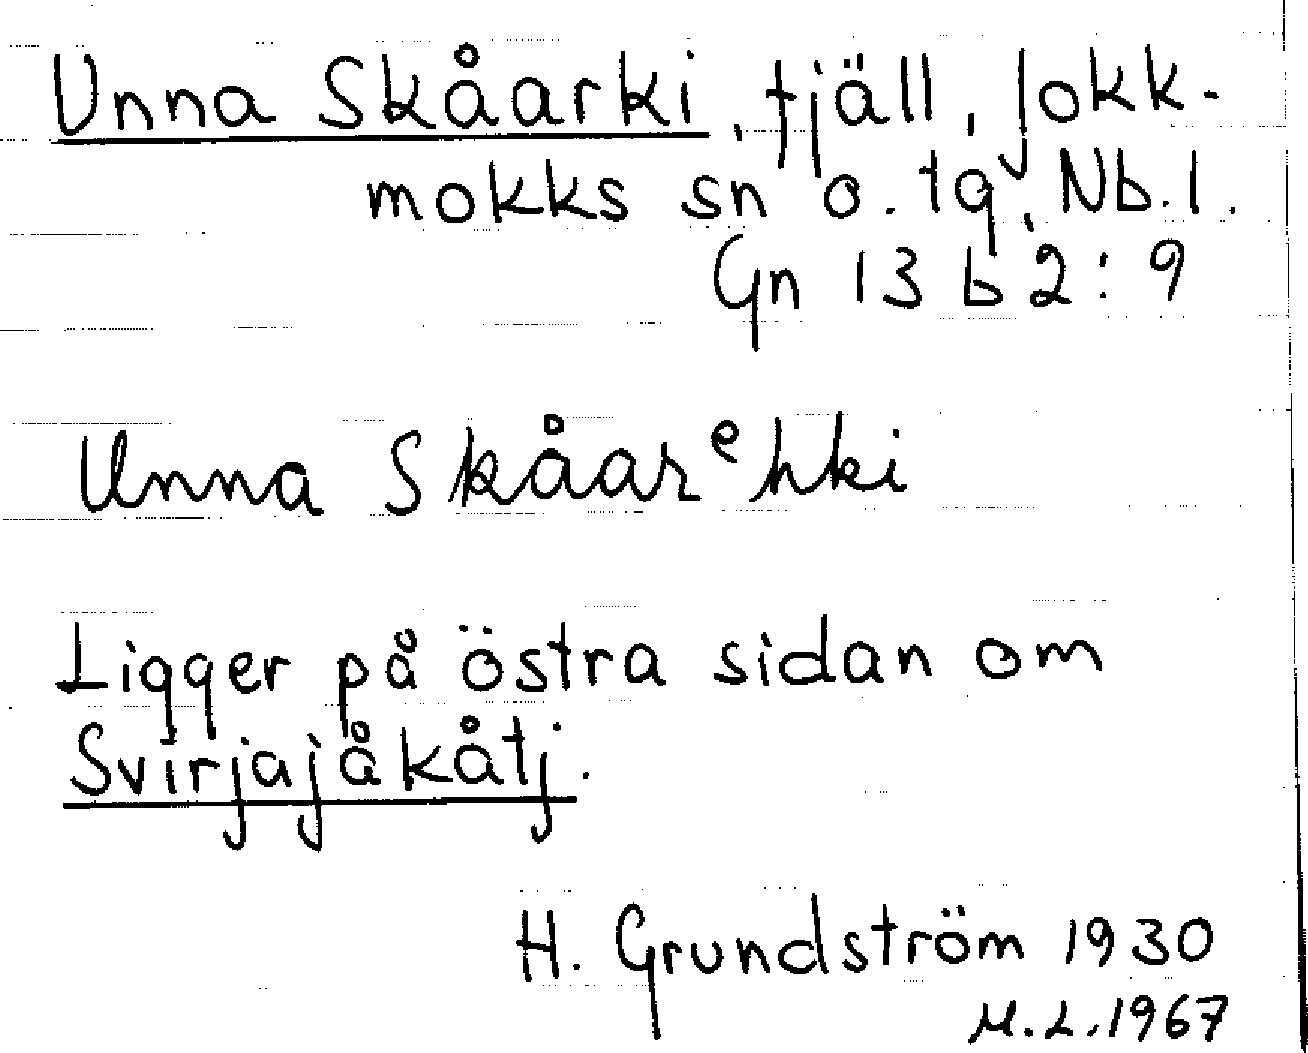 Unna Skåarki, fjäll, Jokk-
mokks sn o. tg, Nb. l.
Gn 13 b 2:9
Unna Skåarᵉhki
Ligger på östra sidan om
Svirjajåkåtj.
H. Grundström 1930
M.L. 1967